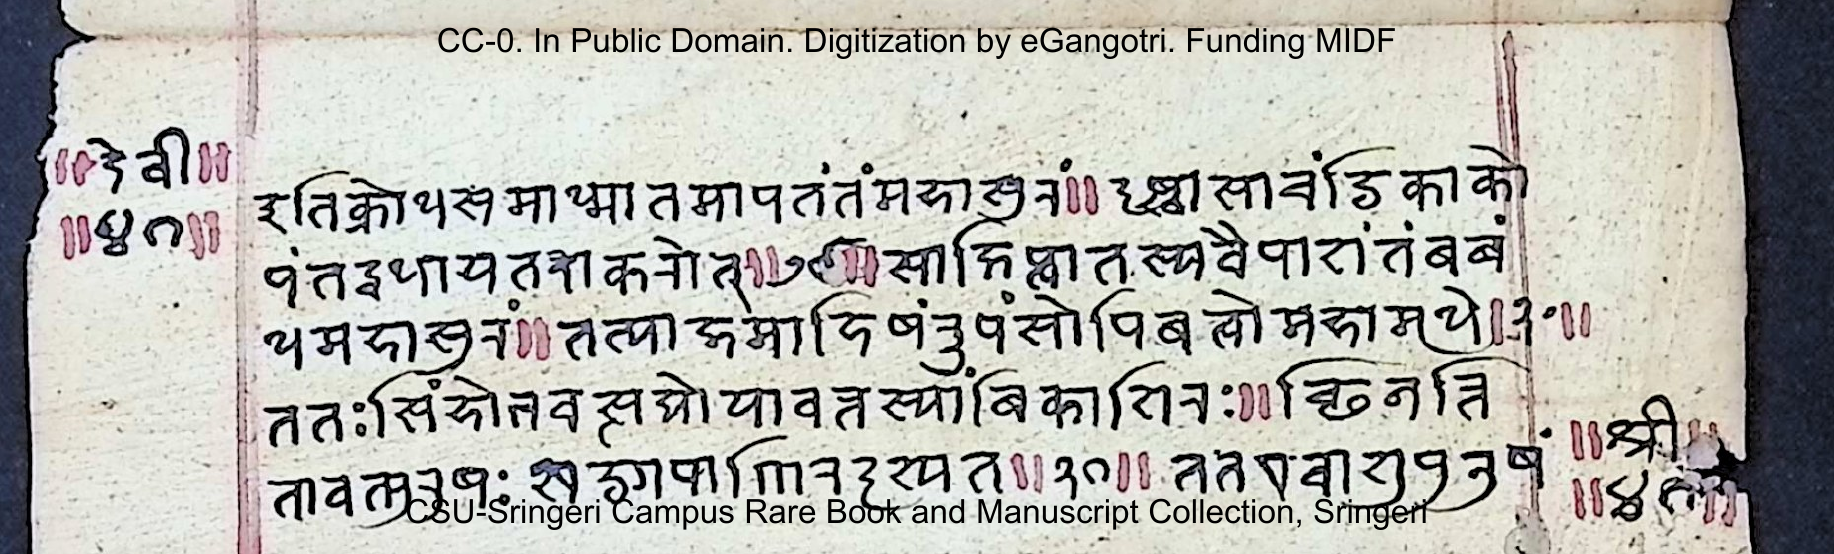 CC-0. In Public Domain. Digitization by eGangotri. Funding MIDF
॥देवी॥
॥४१॥
इतिक्रोधसमाध्मातमापतंतंमहासुरं॥ दृष्ट्वासाचंडिकाको
पंतद्वधायतदाकरोत्॥२९॥साक्षिप्त्वातस्यवैपाशंतंबबं
धमहासुरं॥तत्याजमाहिषंरूपंसोपिबद्धोमहामृधे॥३०॥
ततःसिंहोभवत्सद्योयावत्तस्यांबिकाशिरः॥छिनत्ति
तावत्पुरुषः खड्गपाणिरदृश्यत॥३१॥ ततएवाशुपुरुषं
॥श्री॥
॥४१॥
CSU-Sringeri Campus Rare Book and Manuscript Collection, Sringeri